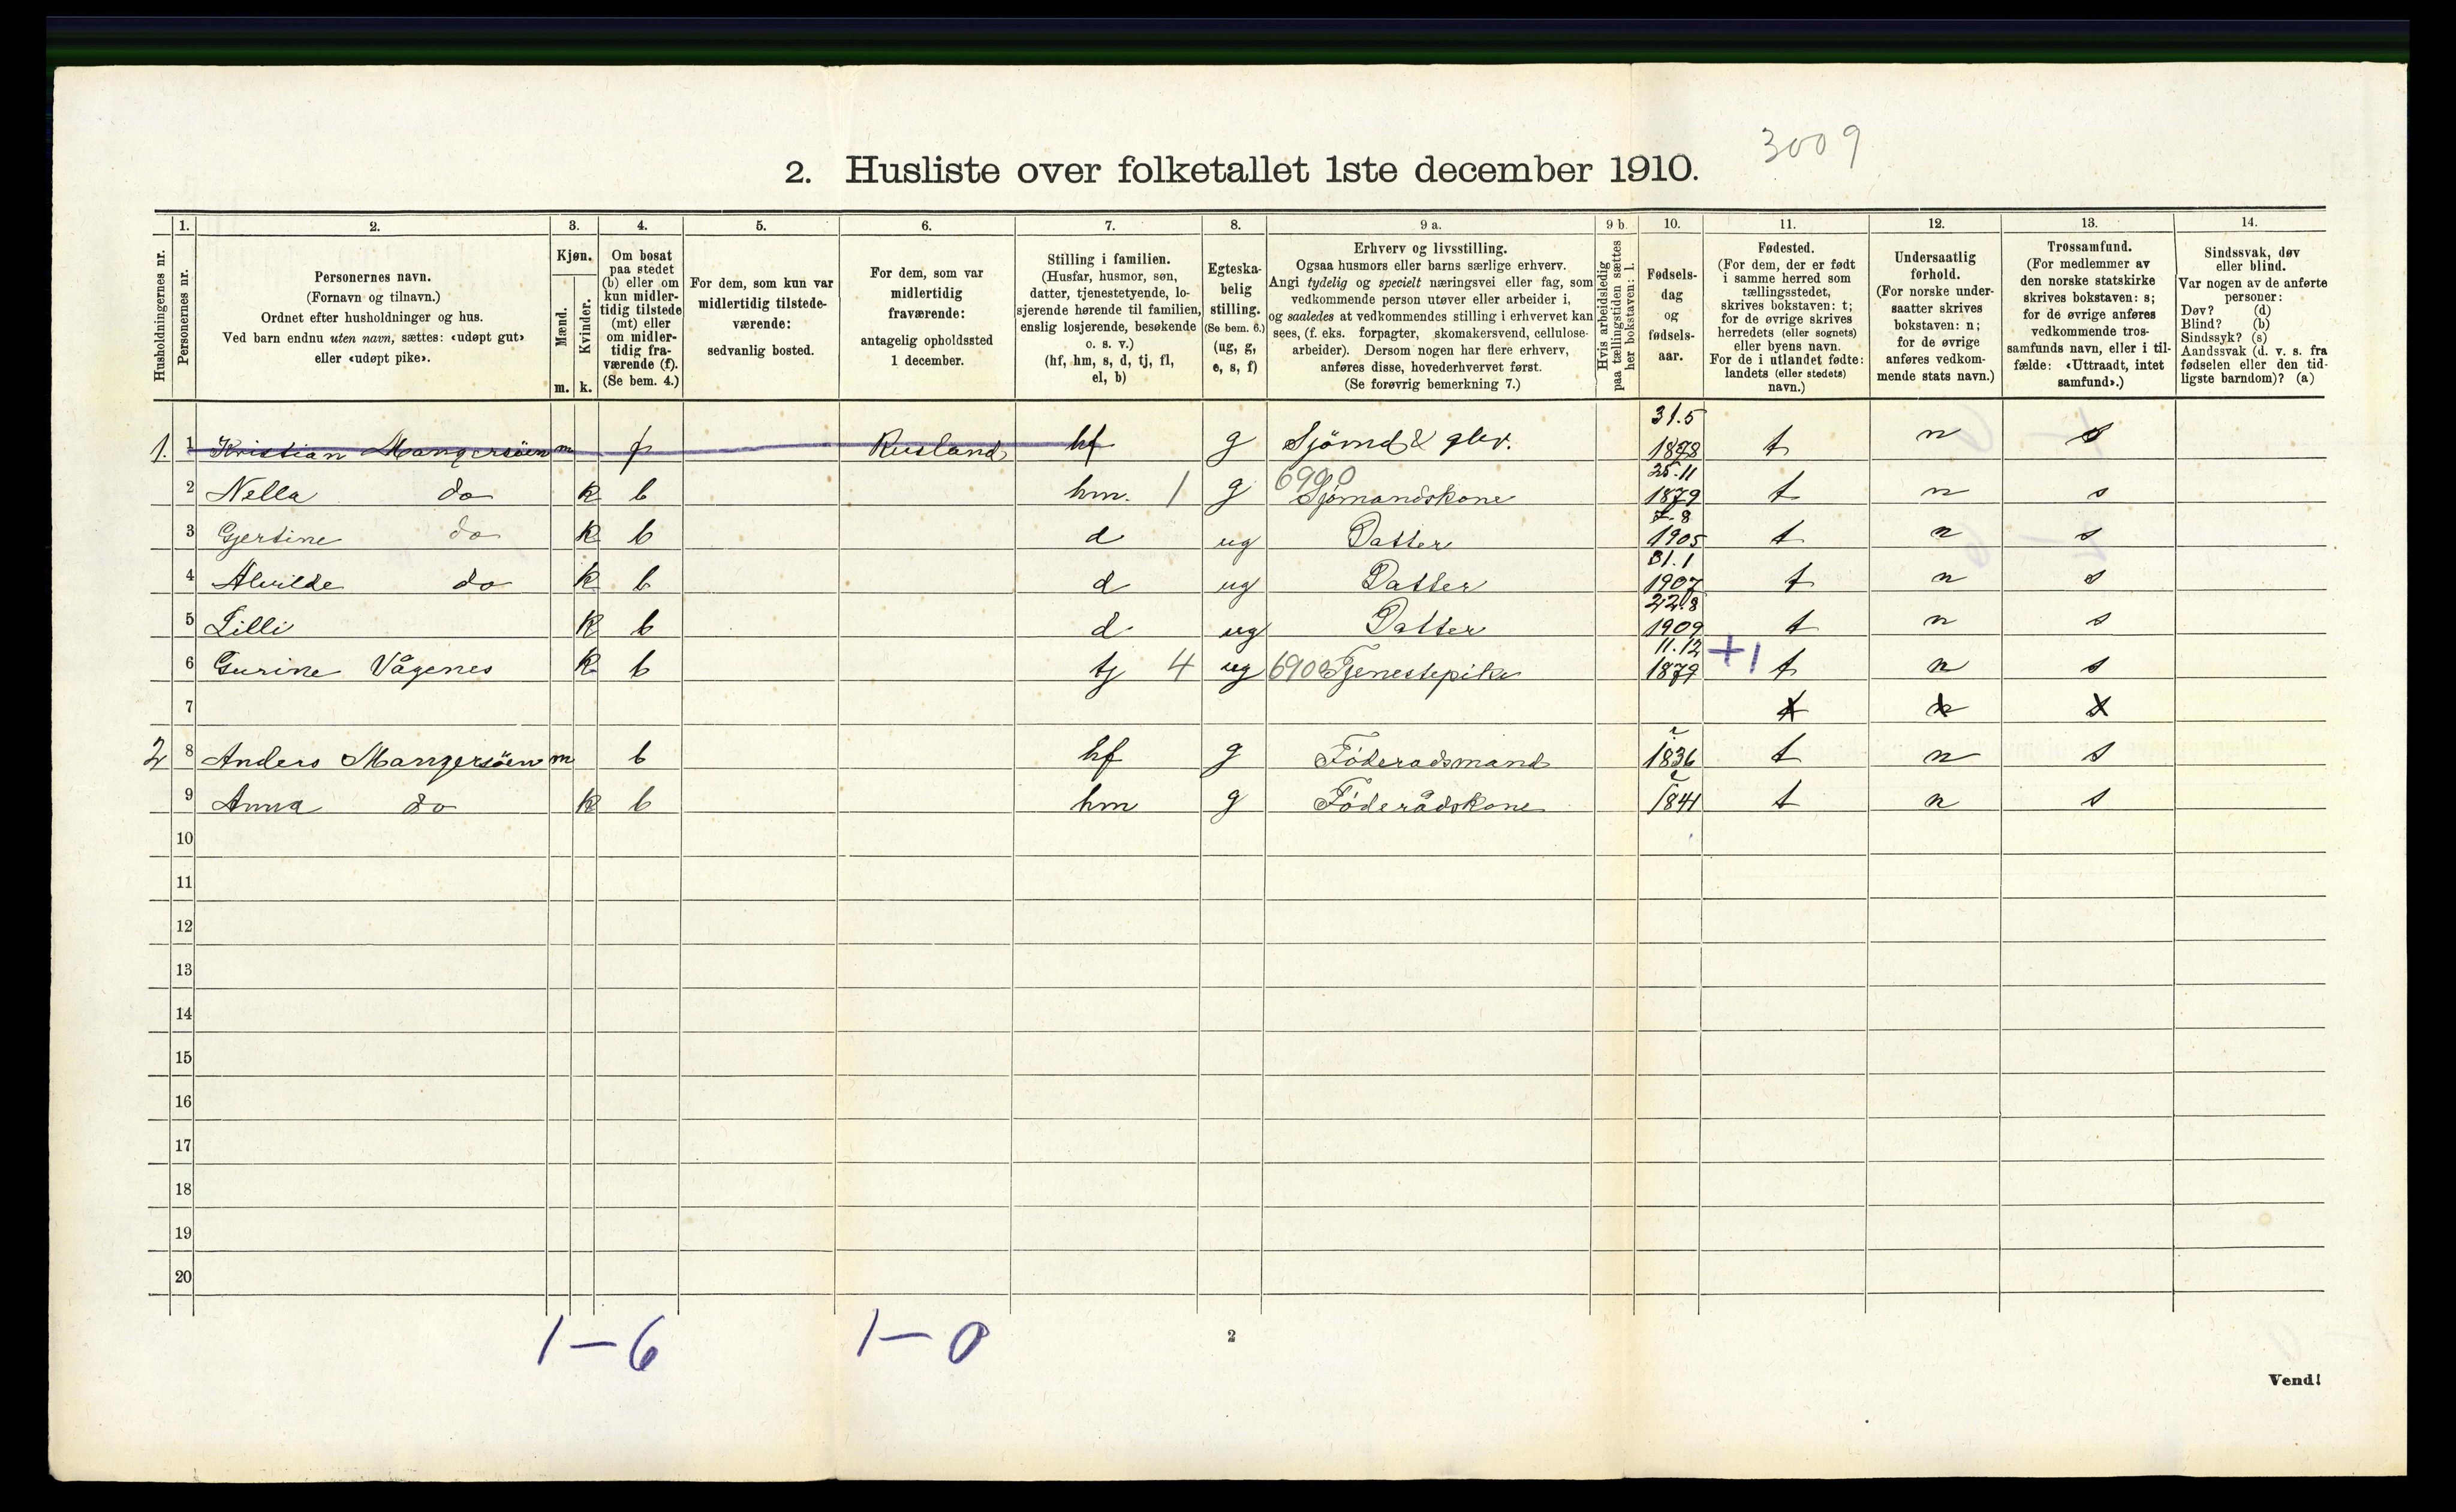 3009
2. Husliste over folketallet 1ste december 1910.
Husholdningernes nr.
1. Personernes nr.
2. Personernes navn.
(Fornavn og tilnavn.)
Ordnet efter husholdninger og hus.
Ved barn endnu uten navn, sættes: «udøpt gut»
eller «udøpt pike».
3. Kjøn.
Mænd. m.
Kvinder. k.
4. Om bosat
paa stedet
(b) eller om
kun midler-
tidig tilstede
(mt) eller
om midler-
tidig fra-
værende (f).
(Se bem. 4.)
5. For dem, som kun var
midlertidig tilstede-
værende:
sedvanlig bosted.
6. For dem, som var
midlertidig
fraværende:
antagelig opholdssted
1 december.
7. Stilling i familien.
(Husfar, husmor, søn,
datter, tjenestetyende, lo-
sjerende hørende til familien,
enslig losjerende, besøkende
o. s. v.)
(hf, hm, s, d, tj, fl,
el, b)
8. Egteska-
belig
stilling.
(Se bem. 6.)
(ug, g,
e, s, f)
9 a. Erhverv og livsstilling.
Ogsaa husmors eller barns særlige erhverv.
Angi tydelig og specielt næringsvei eller fag, som
vedkommende person utøver eller arbeider i,
og saaledes at vedkommendes stilling i erhvervet kan
sees, (f. eks. forpagter, skomakersvend, cellulose-
arbeider). Dersom nogen har flere erhverv,
anføres disse, hovederhvervet først.
(Se forøvrig bemerkning 7.)
9 b. Hvis arbeidsledig
paa tællingstiden sættes
her bokstaven: l.
10. Fødsels-
dag
og
fødsels-
aar.
11. Fødested.
(For dem, der er født
i samme herred som
tællingsstedet,
skrives bokstaven: t;
for de øvrige skrives
herredets (eller sognets)
eller byens navn.
For de i utlandet fødte:
landets (eller stedets)
navn.)
12. Undersaatlig
forhold.
(For norske under-
saatter skrives
bokstaven: n;
for de øvrige
anføres vedkom-
mende stats navn.)
13. Trossamfund.
(For medlemmer av
den norske statskirke
skrives bokstaven: s;
for de øvrige anføres
vedkommende tros-
samfunds navn, eller i til-
fælde: «Uttraadt, intet
samfund».)
14. Sindssvak, døv
eller blind.
Var nogen av de anførte
personer:
Døv? (d)
Blind? (b)
Sindssyk? (s)
Aandssvak (d. v. s. fra
fødselen eller den tid-
ligste barndom)? (a)
1. 1 Kristian Mangersöen m f Rusland hf g Sjömd & glev. 31.5 1878 t n s
2 Nella do k b hm. 1 g 6900 Sjömandskone 25.11 1879 t n s
3 Gjertine do k b d ug Datter 7.8 1905 t n s
4 Alvilde do k b d ug Datter 31.1 1907 t n s
5 Lilli k b d ug Datter 22.8 1909 t n s
6 Gurine Vågenes k b tj 4 ug 6902 Tjenestepike 11.12 1879 +1 t n s
7 t n s
2 8 Anders Mangersöen m b hf g Föderadsmand 1836 t n s
9 Anna do k b hm g Föderådskone 1841 t n s
10
11
12
13
14
15
16
17
18
19
20
1 – 6 1 – 0
2
Vend!